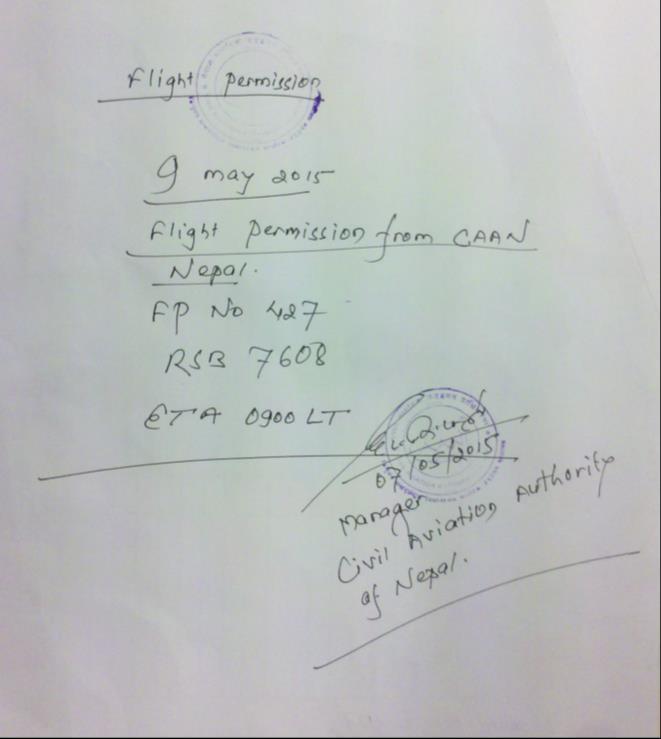 Flight permission
9 may 2015
Flight permission from CAAN
Nepal.
FP No 427
RSB 7608
ETA 0900 LT
07/05/2015
Manager
Civil Aviation Authority
of Nepal.